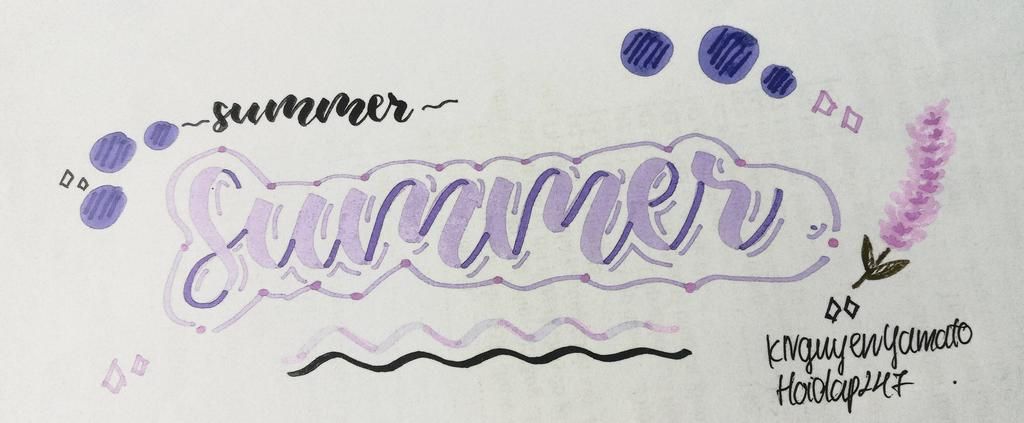 ~summer~
Summer
KNguyenYamato
Hoidap247